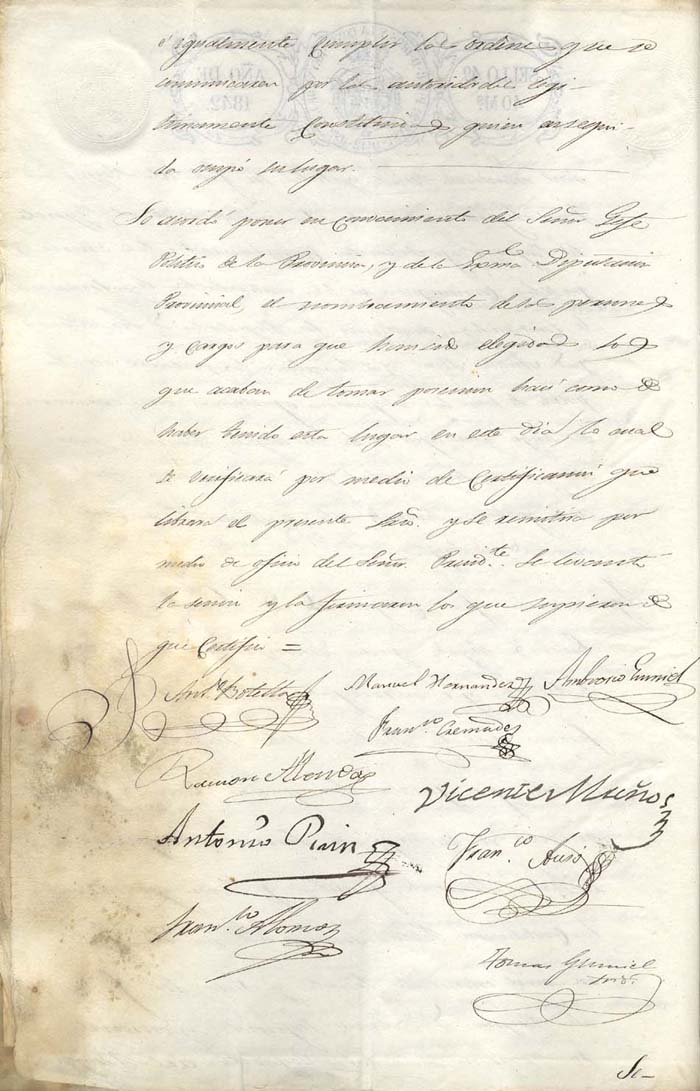 é igualmente cumplir las ordenes que se
comunicaran por las autoridades legi-
timamente Constituidas, quien ensegui-
da ocupó su lugar.
Se acordó poner en conocimiento del Señor Gefe
Politico de la Provincia, y de la Exma Diputacion
Provincial, el nombramiento de las personas
y cargos para que han sido elegidas, los
que acaban de tomar posesion hasi como de
haber tenido esta lugar en este dia, lo cual
se verificará por medio de Certificacion que
librará el presente Srio. y se remitira por
medio de oficio del Señor Presidte. Se levantó
la sesion y la firmaron los que supieron de
que Certifico =
Anto. Botella
Manuel Hernandez
Ambrosio Gumiel
Franco Cremades
Ramon Alonda
Vicente Muños
Antonio
Franco
Franco Alonso
Tomas Gumiel
Srio.
Se-
SELLO 4º
AÑO DE
1842.